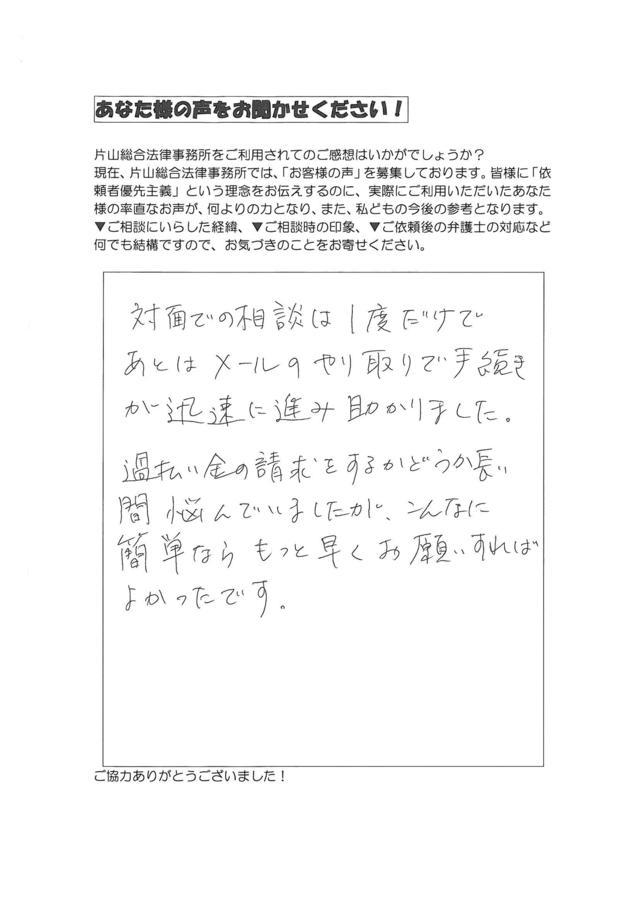 あなた様の声をお聞かせください！
片山総合法律事務所をご利用されてのご感想はいかがでしょうか？
現在、片山総合法律事務所では、「お客様の声」を募集しております。皆様に「依
頼者優先主義」という理念をお伝えするのに、実際にご利用いただいたあなた
様の率直なお声が、何よりの力となり、また、私どもの今後の参考となります。
▼ご相談にいらした経緯、▼ご相談時の印象、▼ご依頼後の弁護士の対応など
何でも結構ですので、お気づきのことをお寄せください。
対面での相談は1度だけで
あとはメールのやり取りで手続き
が迅速に進み助かりました。
過払い金の請求をするかどうか長い
間悩んでいましたが、こんなに
簡単ならもっと早くお願いすれば
よかったです。
ご協力ありがとうございました！